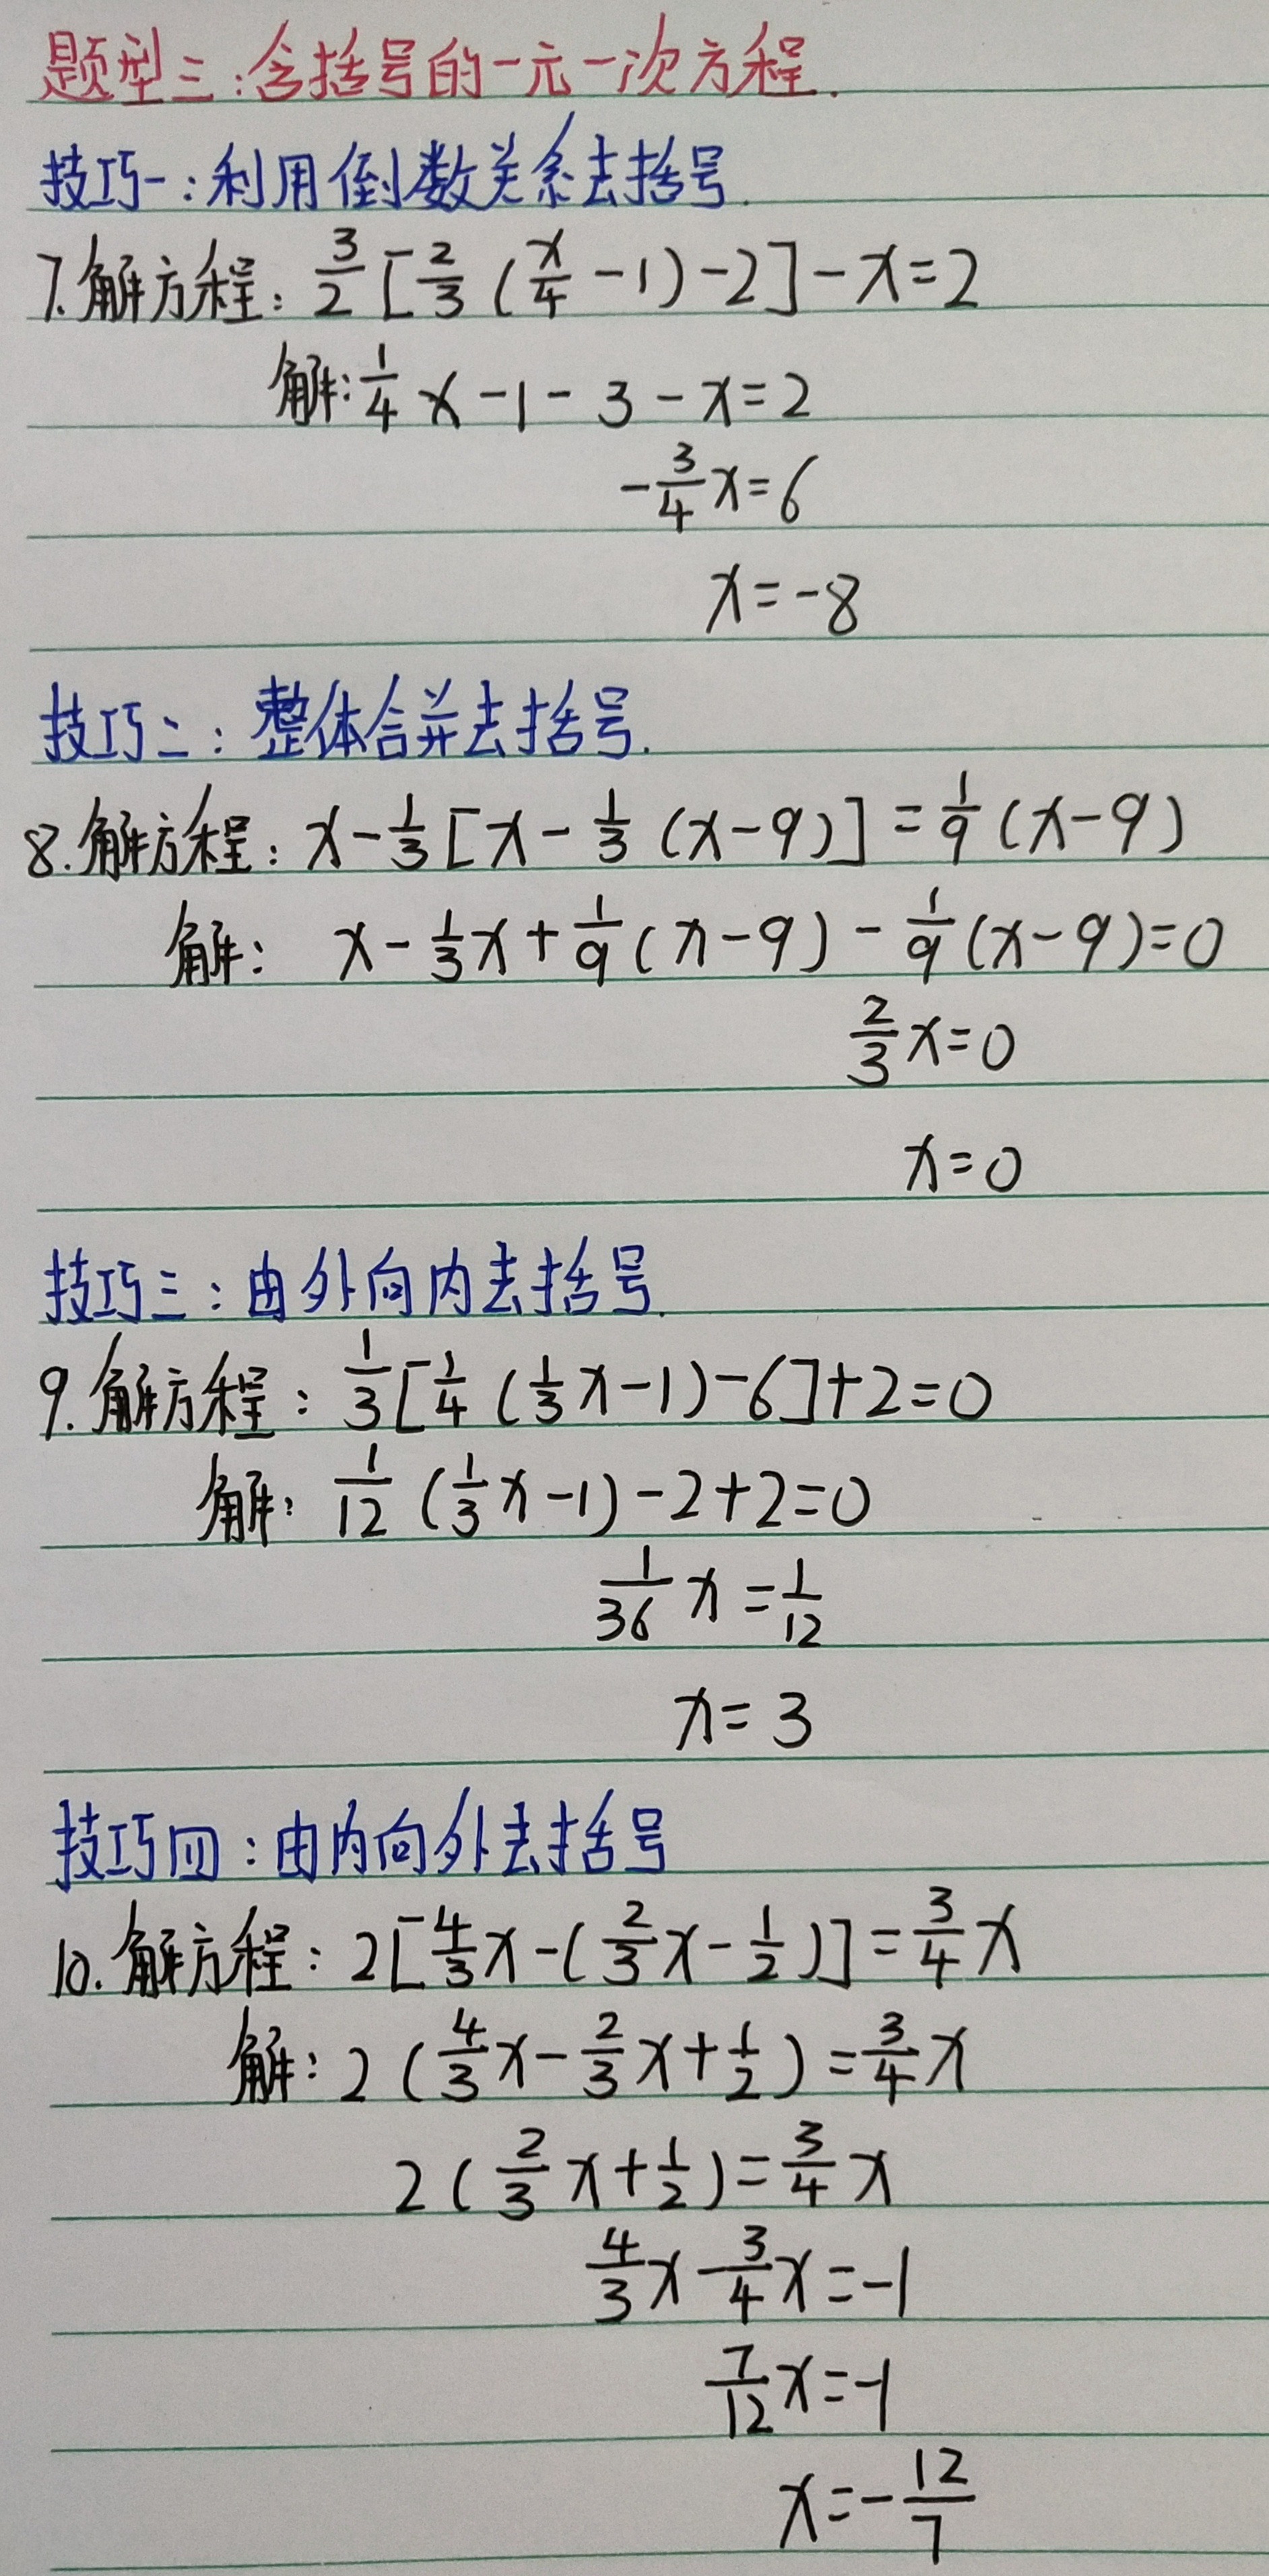 题型三:含括号的一元一次方程.
技巧一:利用倒数关系去括号.
7.解方程: 3/2[2/3(x/4-1)-2]-x=2
解:1/4x-1-3-x=2
-3/4x=6
x=-8
技巧二:整体合并去括号.
8.解方程:x-1/3[x-1/3(x-9)]=1/9(x-9)
解: x-1/3x+1/9(x-9)-1/9(x-9)=0
2/3x=0
x=0
技巧三:由外向内去括号.
9.解方程:1/3[1/4(1/3x-1)-6]+2=0
解:1/12(1/3x-1)-2+2=0
1/36x=1/12
x=3
技巧四:由内向外去括号
10.解方程:2[4/3x-(2/3x-1/2)]=3/4x
解:2(4/3x-2/3x+1/2)=3/4x
2(2/3x+1/2)=3/4x
4/3x-3/4x=-1
7/12x=-1
x=-12/7